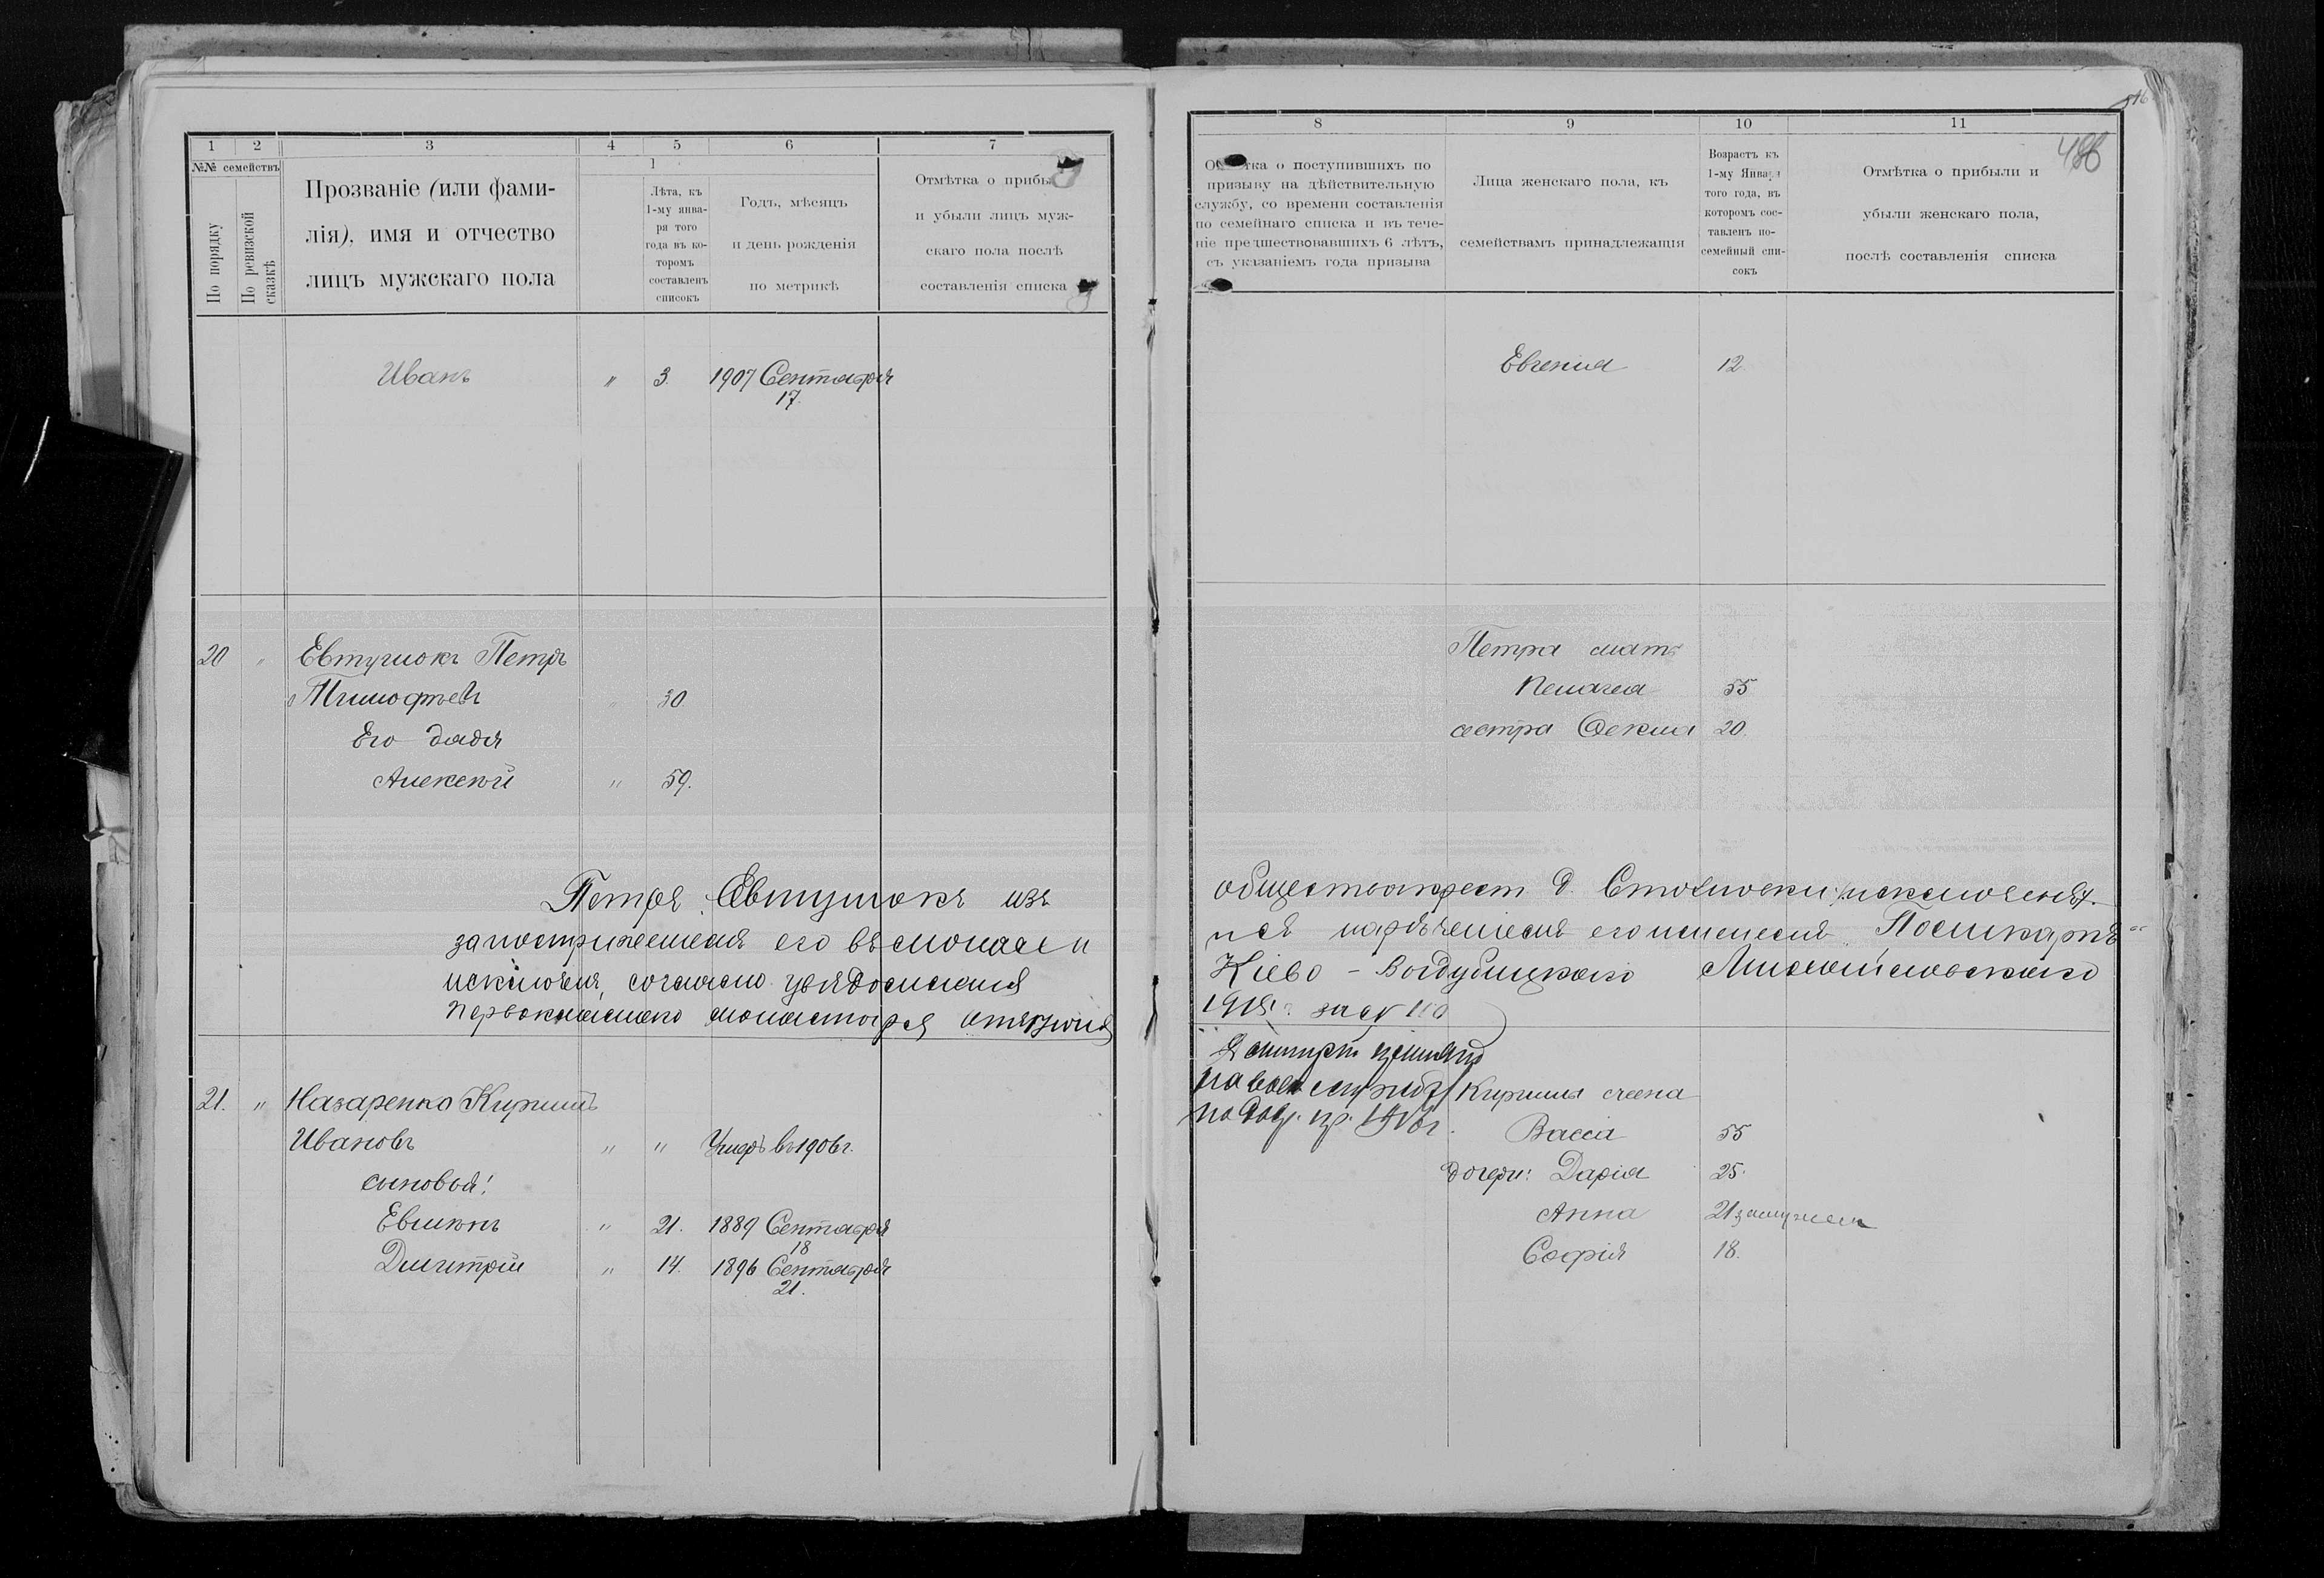 1 2 3 4 5 6 7
№№ семействъ
По порядку
По ревизской сказкѣ
Прозваніе (или фами-
лія), имя и отчество
лицъ мужскаго пола
1
Лѣта, къ
1-му янва-
ря того
года въ ко-
торомъ
составленъ
списокъ
Годъ, мѣсяцъ
и день рожденія
по метрикѣ
Отмѣтка о прибы
и убыли лицъ муж-
скаго пола послѣ
составленія списка
Иванъ " 3. 1907 Сентября
17.
20 " Евтушокъ Петръ
Тимофѣевъ " 30
Его дядя
Алексѣй " 59.
Петръ Евтушокъ изъ
за постриженіемъ его въ монахи
исключенъ, согласно увѣдомленія
первокласнаго монастыря
21. " Назаренко Кириллъ
Ивановъ " " Умеръ въ 1906 г.
сыновья:
Евмѣнъ " 21. 1889 Сентября
18
Дмитрій " 14. 1896 Сентября
21.
8 9 10 11
516
486
тка о поступившихъ по
призыву на дѣйствительную
службу, со времени составленія
по семейнаго списка и въ тече-
ніе предшествовавшихъ 6 лѣтъ,
съ указаніемъ года призыва
Лица женскаго пола, къ
семействамъ принадлежащія
Возрастъ къ
1-му Января
того года, въ
которомъ сос-
тавленъ по-
семейный спи-
сокъ
Отмѣтка о прибыли и
убыли женскаго пола,
послѣ составленія списка
Евгенія 12
Петра мать
Пелагея 55
сестра Фекла 20.
общества крест. д.
нарѣченіемъ его именемъ Поликарпъ
Кіево - Выдубицкаго Михайловскаго
за № 110
принятъ
на воен службу
Кирилла жена
Васса 55
дочери: Дарія 25.
Анна 21 замужем
Софія 18.